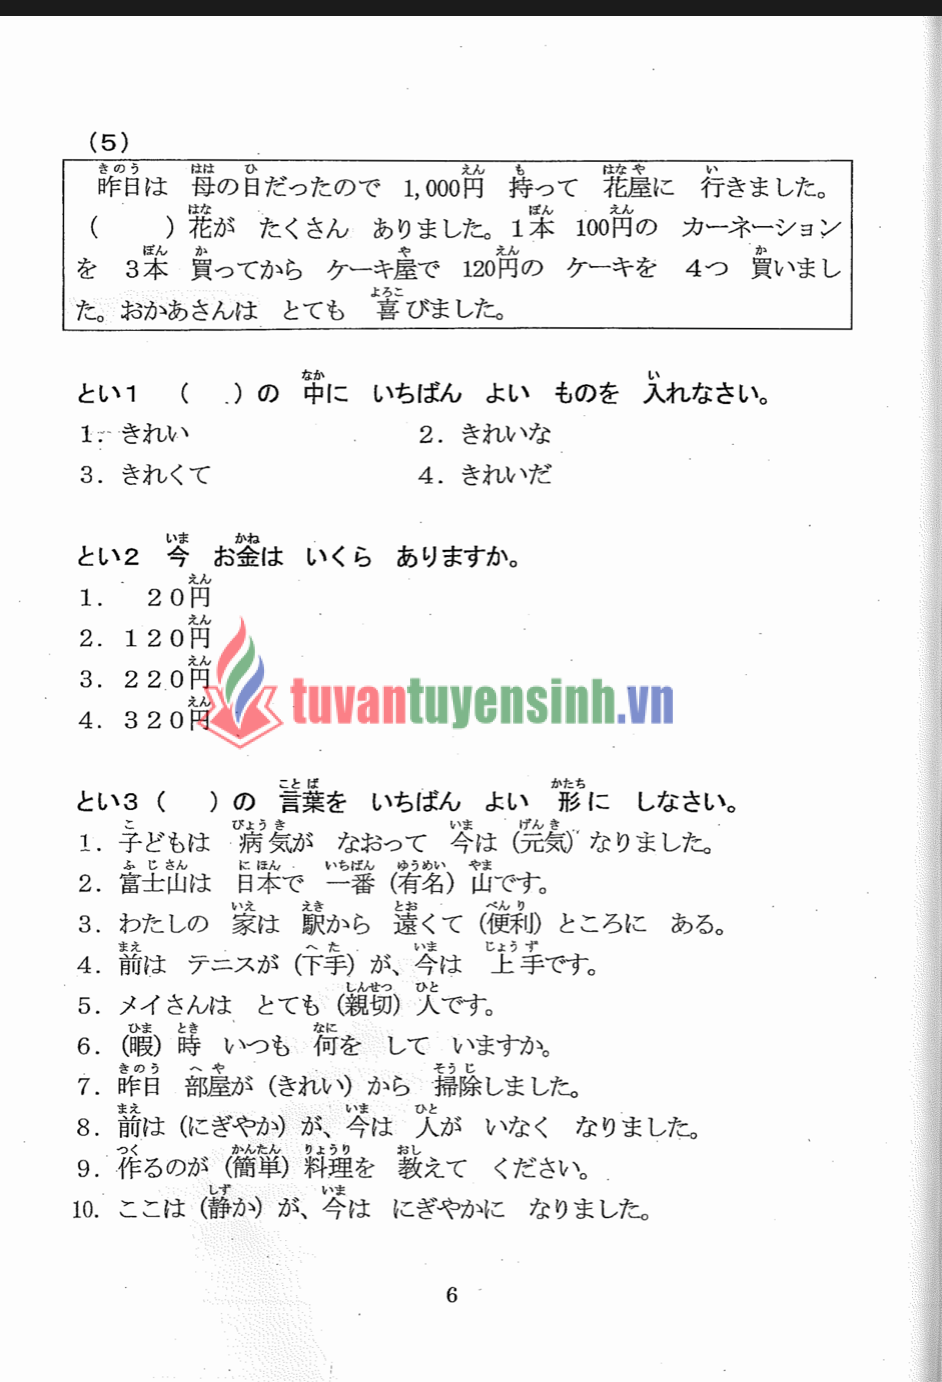 (5)
昨日は 母の日だったので 1,000円 持って 花屋に 行きました。
( )花が たくさん ありました。1本 100円の カーネーション
を 3本 買ってから ケーキ屋で 120円の ケーキを 4つ 買いまし
た。おかあさんは とても 喜びました。
とい1 ( )の 中に いちばん よい ものを 入れなさい。
1. きれい 2. きれいな
3. きれくて 4. きれいだ
とい2 今 お金は いくら ありますか。
1. 20円
2. 120円
3. 220円
4. 320円
tuvantuyensinh.vn
とい3 ( )の 言葉を いちばん よい 形に しなさい。
1. 子どもは 病気が なおって 今は (元気) なりました。
2. 富士山は 日本で 一番 (有名) 山です。
3. わたしの 家は 駅から 遠くて (便利) ところに ある。
4. 前は テニスが (下手) が、今は 上手です。
5. メイさんは とても (親切) 人です。
6. (暇) 時 いつも 何を して いますか。
7. 昨日 部屋が (きれい) から 掃除しました。
8. 前は (にぎやか) が、今は 人が いなく なりました。
9. 作るのが (簡単) 料理を 教えて ください。
10. ここは (静か) が、今は にぎやかに なりました。
6